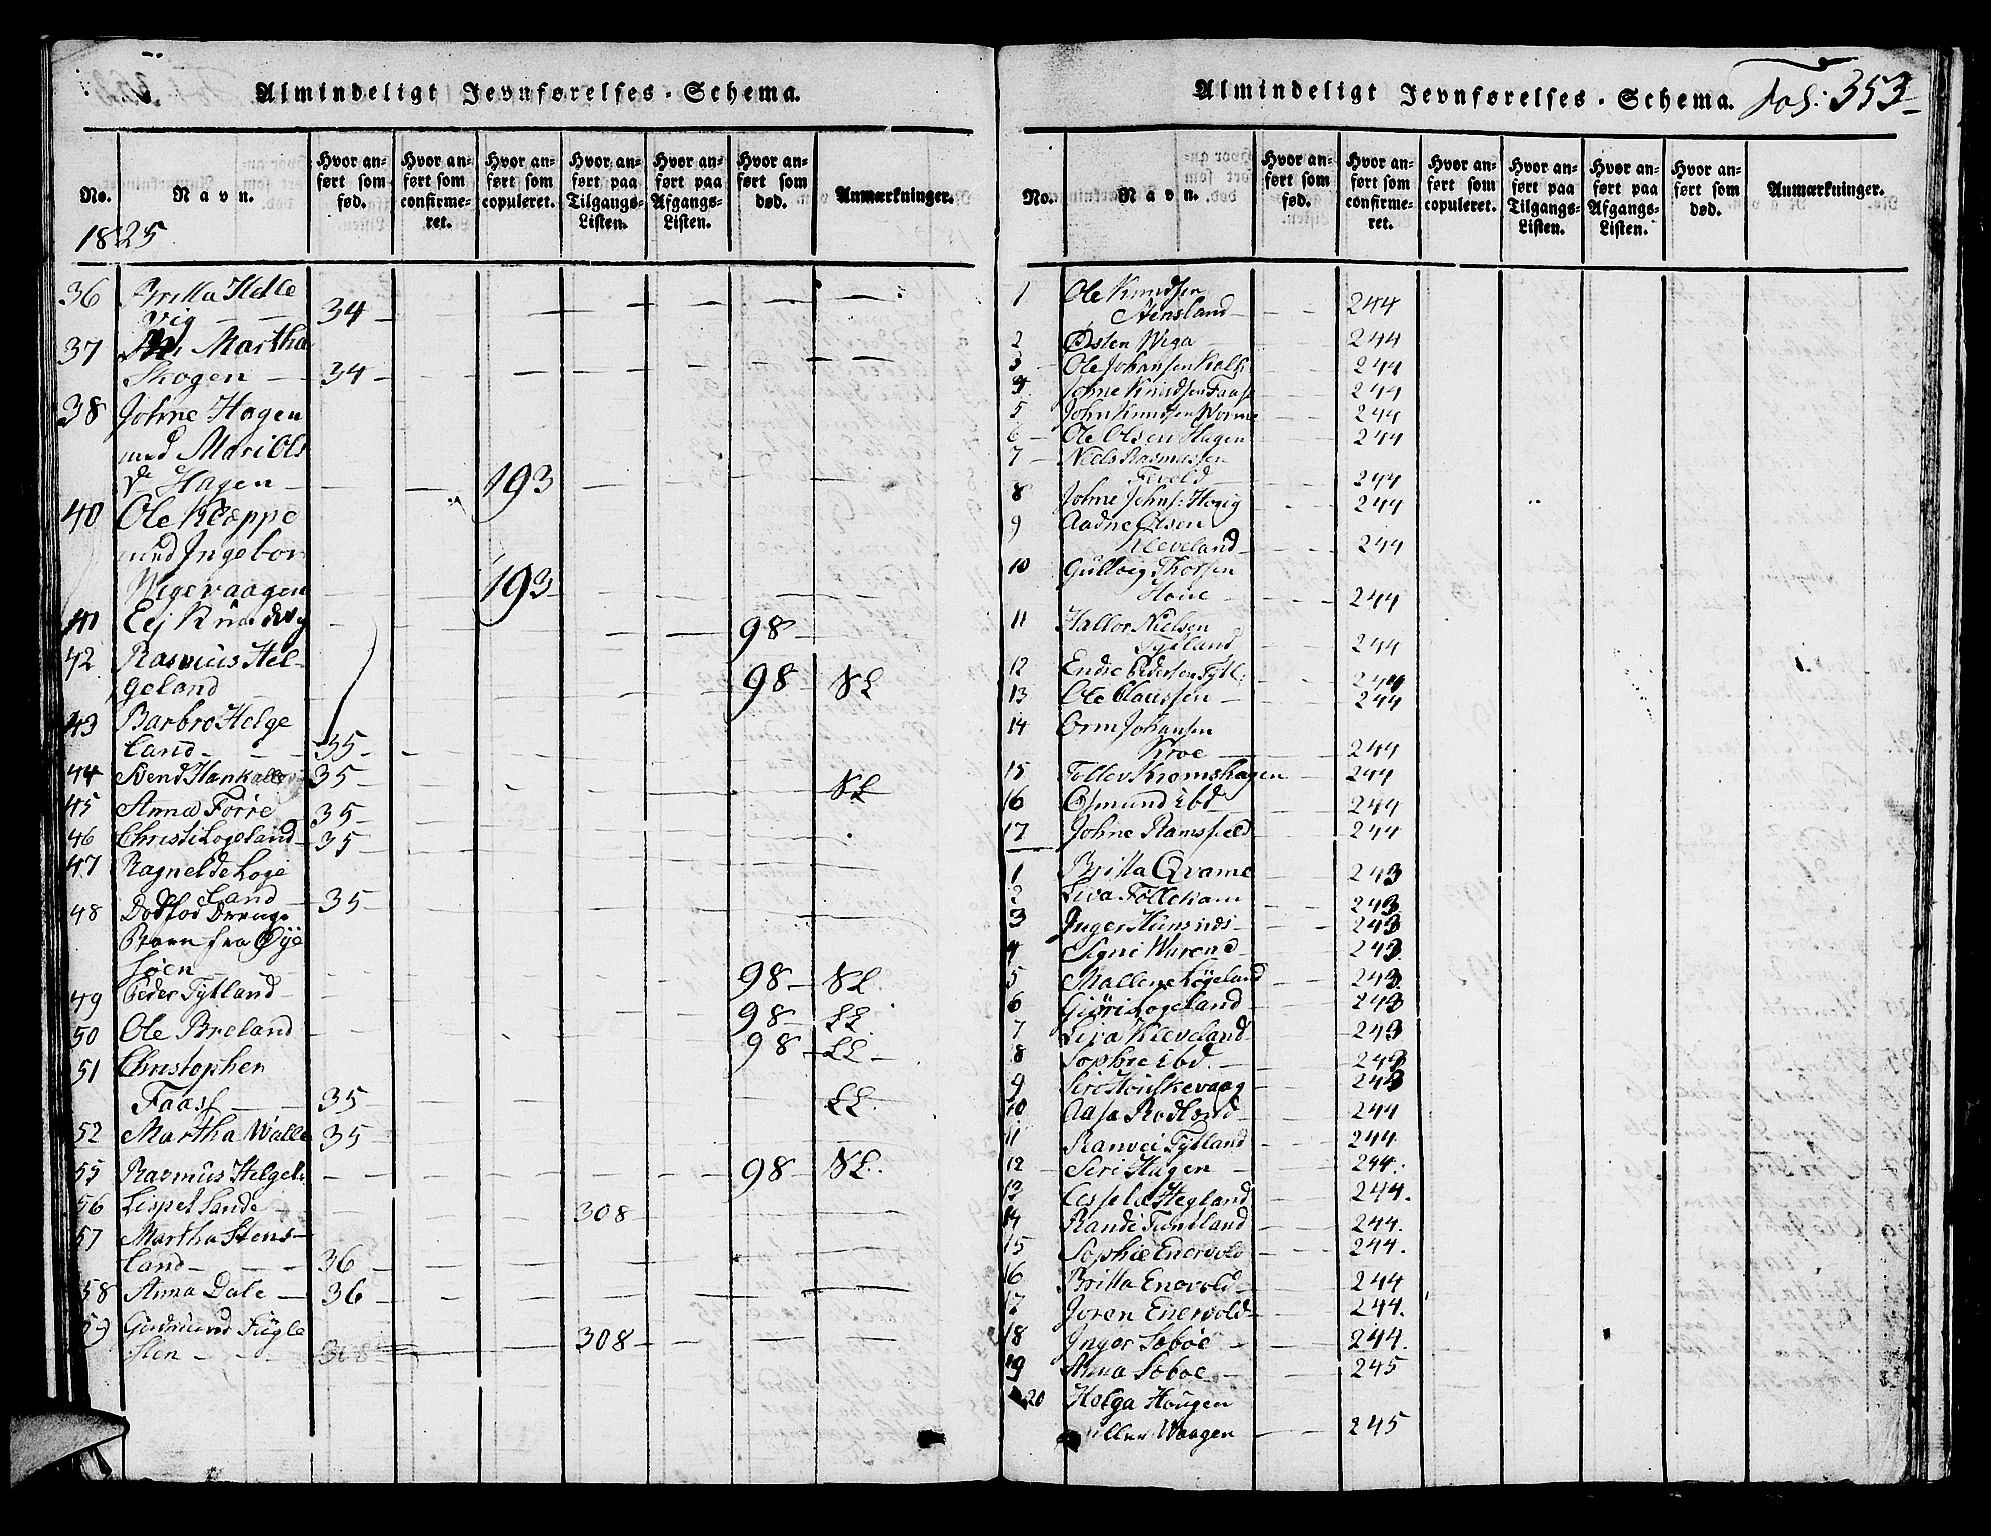 Almindeligt Jevnførelses-Schema.
No. Navn. Hvor anført som fød. Hvor anført som confirmeret. Hvor anført som copuleret. Hvor anført paa Tilgangs-Listen. Hvor anført paa Afgangs-Listen. Hvor anført som død. Anmærkninger.
1825
36 Britta Helle
vig 34
37 Martha
Skogen 34
38 Johne Hagen
med Mari Ols
Hagen 193
40 Ole Kleppe
med Ingebor
Wigevaagen 193
41 Eej 98
42 Rasmus Hel-
geland 98 SL
43 Barbro Helge
land 35
44 Svend 35 SL
45 Anna Førre 35
46 Christi Løgeland 35
47 Ragnelde Løge
land 35
48 Dødfød Drenge
Barn fra Øye
søen 98 SL.
49 Peder Tytland 98 LL.
50 Ole Breland 98 LL
51 Christophen
Faass 35 LL.
52 Martha Walle 35
55 Rasmus Helgel. 98 SL.
56 Lispet Sande 308
57 Martha Stens-
land 36
58 Anna Dale 36
59 Gudmund Fugle
sten 308 308
Almindeligt Jevnførelses-Schema. Fol: 353
No. Navn. Hvor anført som fød. Hvor anført som confirmeret. Hvor anført som copuleret. Hvor anført paa Tilgangs-Listen. Hvor anført paa Afgangs-Listen. Hvor anført som død. Anmærkninger.
1 Ole Knudsen
Stensland 244
2 Østen Wiga 244
3 Ole Johansen 244
4 Johne Knudsen Faass 244
5 John Knudsen 244
6 Ole Olsen Hagen 244
7 Niels Rasmussen
244
8 Johne Johns: 244
9 Aadne Olsen
Kleveland 244
10 Gullvig Thorsen
244
11 Hallor Nielsen
Tytland 244
12 Endre Pedersen Tytl: 244
13 Ole Claussen 244
14 Orm Johansen
Kroe 244
15 Tollev Kromshagen 244
16 Osmund ibd 244
17 Johne Ramsfield 244
1 Britta Qvame 243
2 Liva 243
3 Inger 243
4 Signi 243
5 Mallene Løgeland 243
6 Gjøri Løgeland 243
7 Liva Kleveland 243
8 Sophie ibd. 243
9 Siri 243
10 Aasa Rodland 244
11 Ranvei Tytland 244
12 Siri Hagen 244.
13 Hegland 244.
14 Randi 244.
15 Sophie Enervold 244.
16 Britta Enervold 244
17 Joren Enervold 244.
18 Inger Søbøe 244.
19 Anna Søbøe 245
20 Helga Hougen
Waagen 245